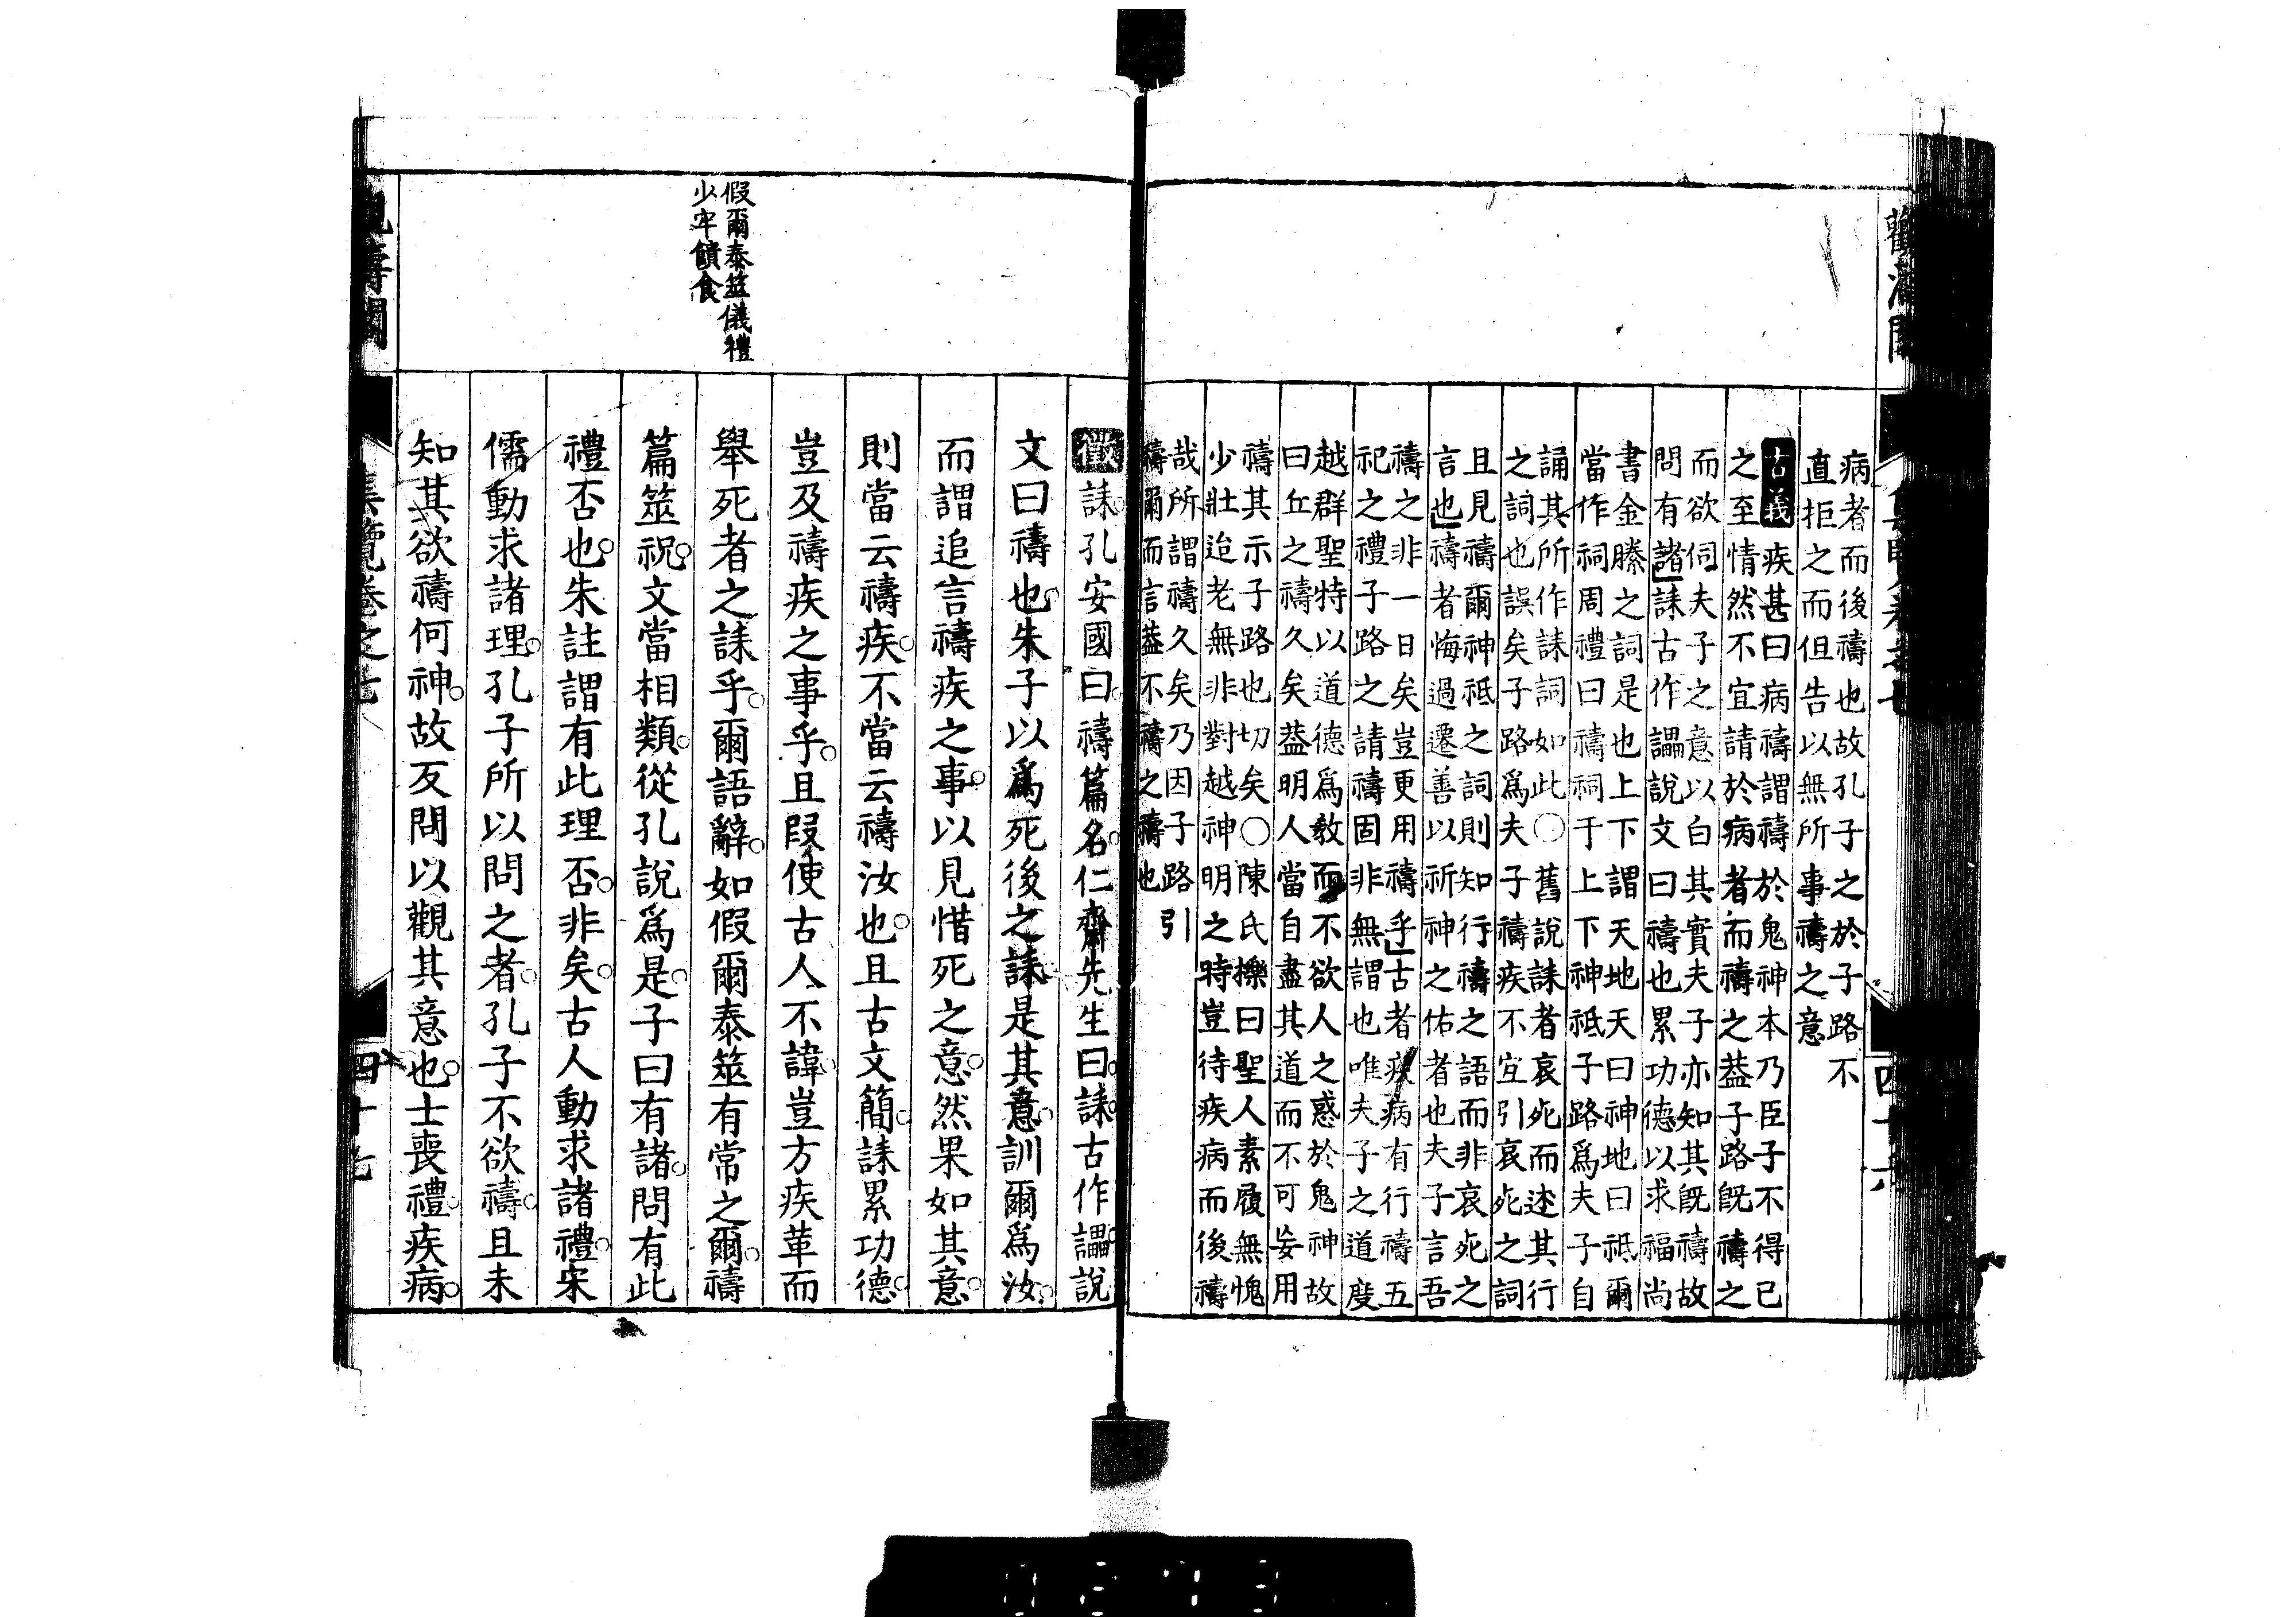 病者而後禱也故孔子之於子路不
直拒之而但告以無所事禱之意
古義 疾甚曰病禱謂禱於鬼神本乃臣子不得已
之至情然不宜請於病者而禱之葢子路既禱之
而欲伺夫子之意以白其實夫子亦知其既禱故
問有諸誄古作讄說文曰禱也累功德以求福尚
書金縢之詞是也上下謂天地天曰神地曰祇爾
當作祠周禮曰禱祠于上下神祇子路爲夫子自
誦其所作誄詞如此〇舊說誄者哀死而述其行
之詞也誤矣子路爲夫子禱疾不宜引哀死之詞
且見禱爾神祇之詞則知行禱之語而非哀死之
言也禱者悔過遷善以祈神之佑者也夫子言吾
禱之非一日矣豈更用禱乎古者疾病有行禱五
祀之禮子路之請禱固非無謂也唯夫子之道度
越群聖特以道德爲教而不欲人之惑於鬼神故
曰丘之禱久矣葢明人當自盡其道而不可妄用
禱其示子路也切矣〇陳氏櫟曰聖人素履無愧
少壯迨老無非對越神明之時豈待疾病而後禱
哉所謂禱久矣乃因子路引
禱爾而言葢不禱之禱也
四十六
徵 誄孔安國曰禱篇名仁齋先生曰誄古作讄說
文曰禱也朱子以爲死後之誄是其意訓爾爲汝
而謂追言禱疾之事以見惜死之意然果如其意
則當云禱疾不當云禱汝也且古文簡誄累功德
豈及禱疾之事乎且叚使古人不諱豈方疾革而
舉死者之誄乎爾語辭如假爾泰筮有常之爾禱
篇筮祝文當相類從孔說爲是子曰有諸問有此
禮否也朱註謂有此理否非矣古人動求諸禮宋
儒動求諸理孔子所以問之者孔子不欲禱且未
知其欲禱何神故反問以觀其意也士喪禮疾病
假爾泰筮儀禮
少牢饋食
集覽卷之七
四十七